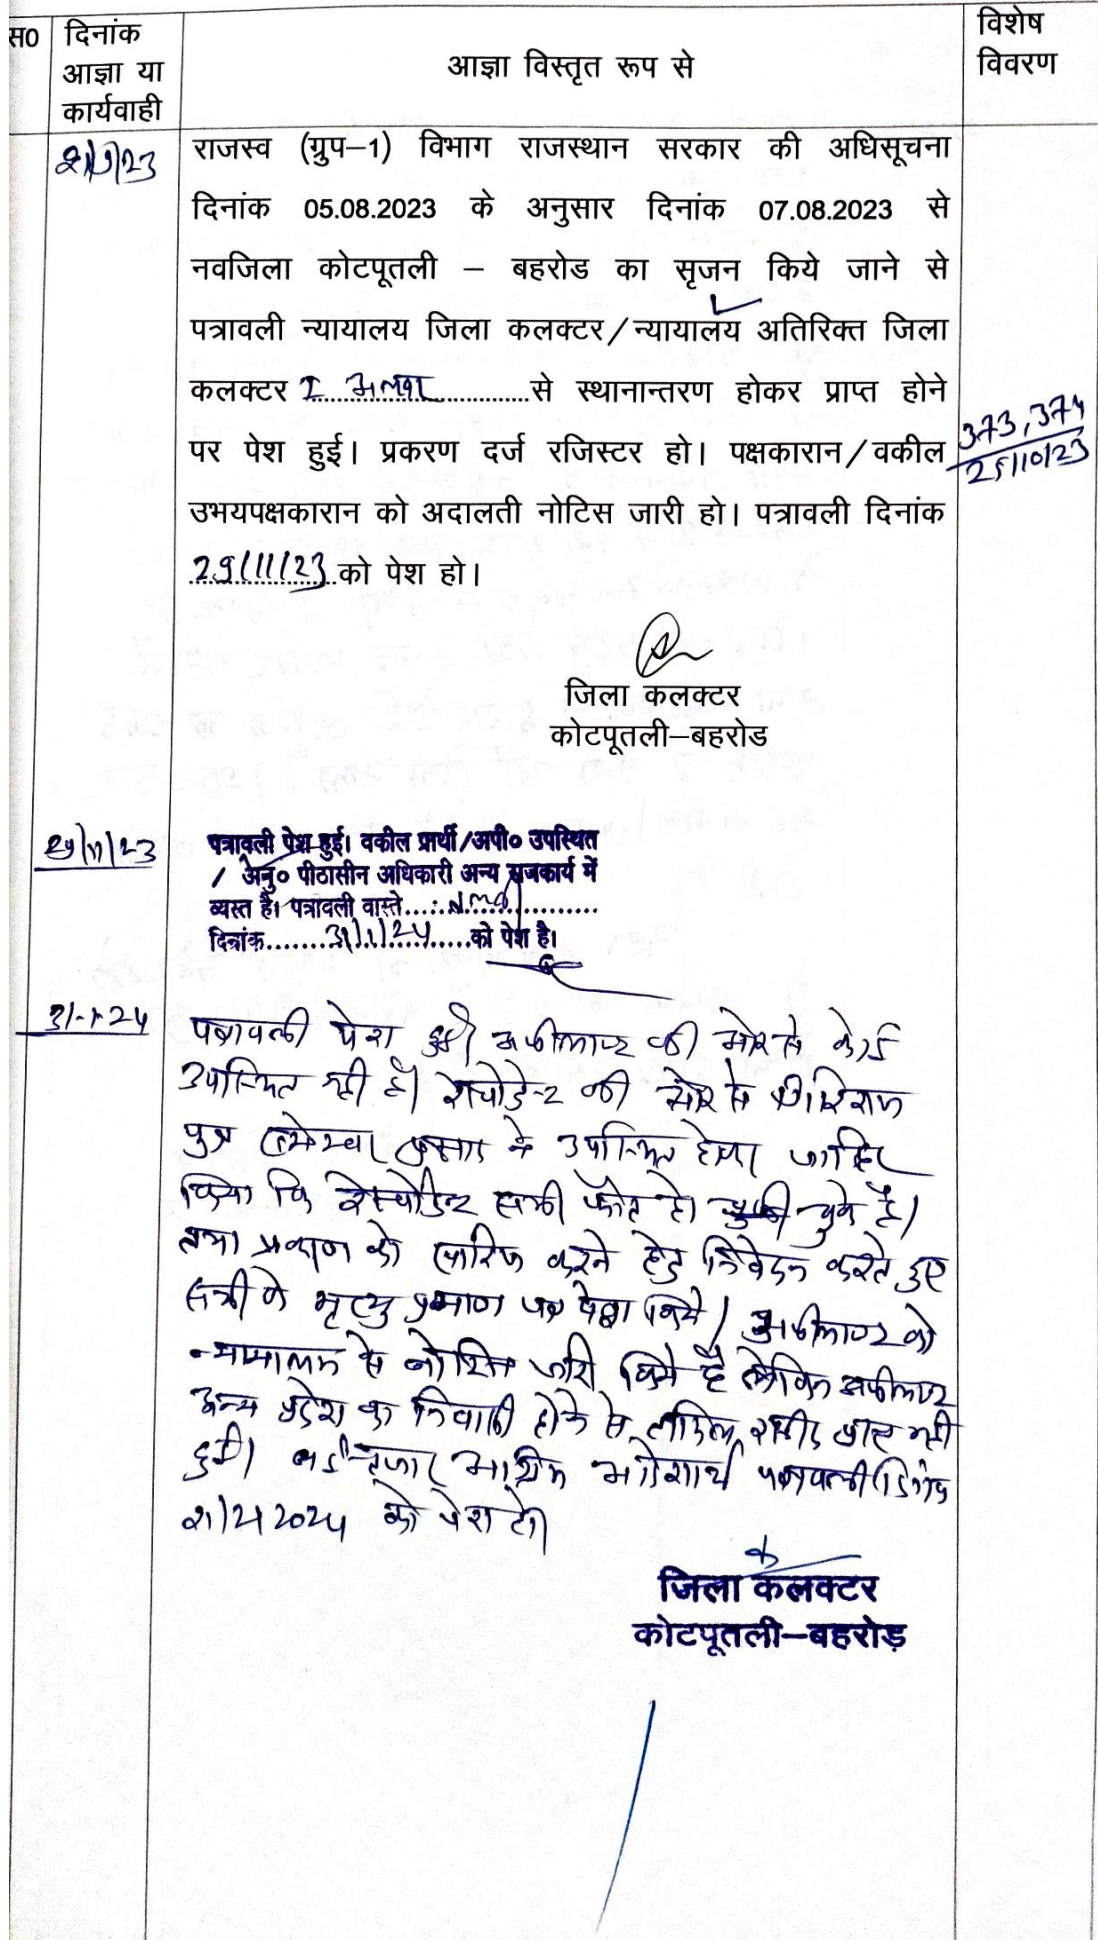 स0
दिनांक
आज्ञा या
कार्यवाही
आज्ञा विस्तृत रूप से
विशेष
विवरण
राजस्व (ग्रुप–1) विभाग राजस्थान सरकार की अधिसूचना
दिनांक 05.08.2023 के अनुसार दिनांक 07.08.2023 से
नवजिला कोटपूतली – बहरोड का सृजन किये जाने से
पत्रावली न्यायालय जिला कलक्टर/न्यायालय अतिरिक्त जिला
कलक्टर I अलवर से स्थानान्तरण होकर प्राप्त होने
पर पेश हुई। प्रकरण दर्ज रजिस्टर हो। पक्षकारान/वकील
373, 374
25/10/23
उभयपक्षकारान को अदालती नोटिस जारी हो। पत्रावली दिनांक
29/11/23 को पेश हो।
जिला कलक्टर
कोटपूतली–बहरोड
29/11/23
पत्रावली पेश हुई। वकील प्रार्थी/अपी० उपस्थित
/ अनु० पीठासीन अधिकारी अन्य राजकार्य में
व्यस्त है। पत्रावली वास्ते
दिनांक 31/1/24 को पेश है।
31-1-24
पत्रावली पेश हुई। अपीलाण्ट की ओर से कोई
उपस्थित नहीं है। रेस्पोडेन्ट की ओर से
पुत्र प्रसाद ने उपस्थित होकर जाहिर
किया कि रेस्पोडेन्ट सभी फौत हो चुके है।
तथा प्रकरण को खारिज करने हेतु निवेदन करते हुए
सभी के मृत्यु प्रमाण पत्र पेश किये। अपीलाण्ट को
न्यायालय से नोटिस जारी किये है लेकिन अपीलाण्ट
अन्य प्रदेश का निवासी होने से तामिल रसीद प्राप्त नही
हुई। पत्रावली दिनांक
21/2/2024 को पेश हो।
जिला कलक्टर
कोटपूतली–बहरोड़